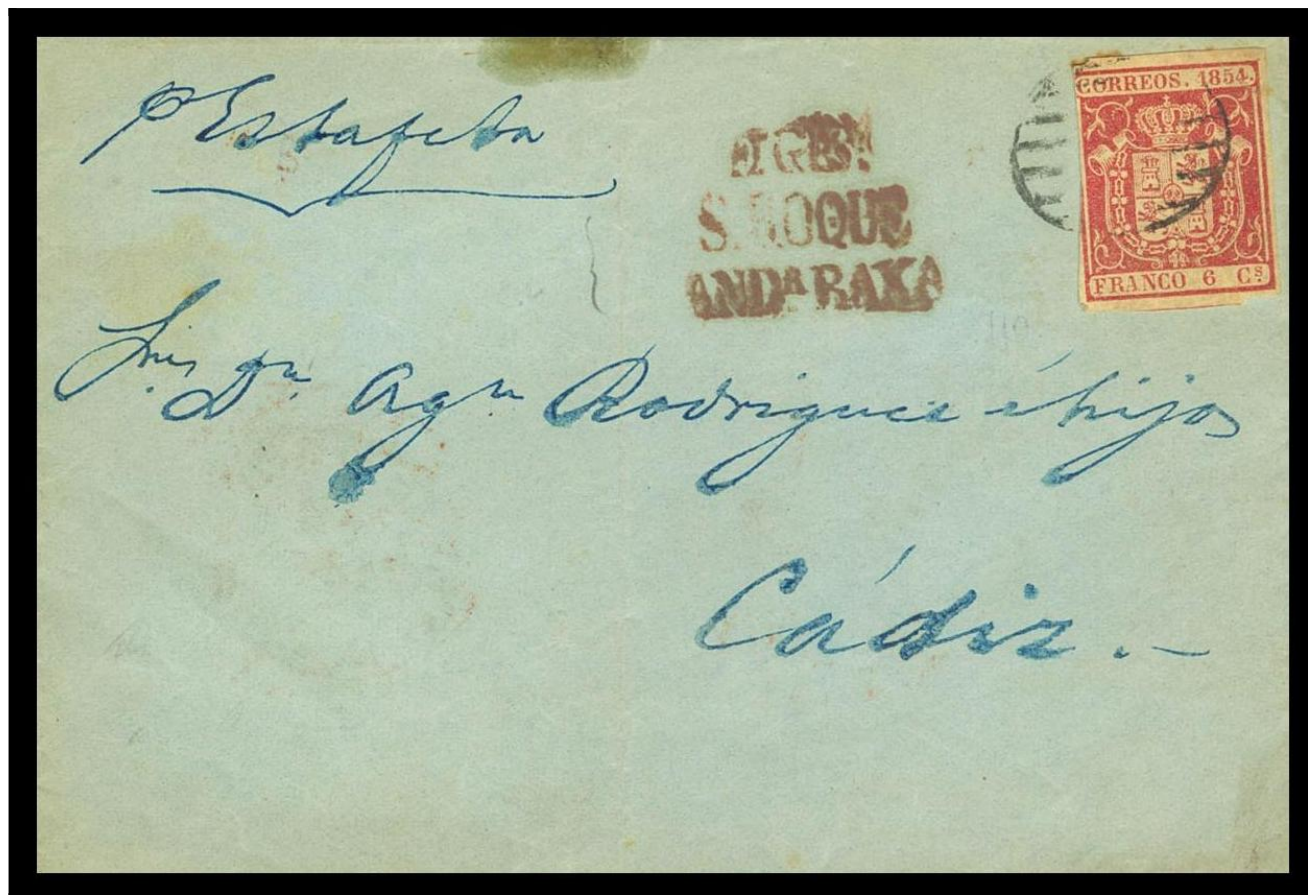 P Estafeta
S. ROQUE
ANDª BAXA
CORREOS. 1854.
FRANCO 6 Cs.
Sres Dn Agn Rodriguez é hijos
Cádiz.-